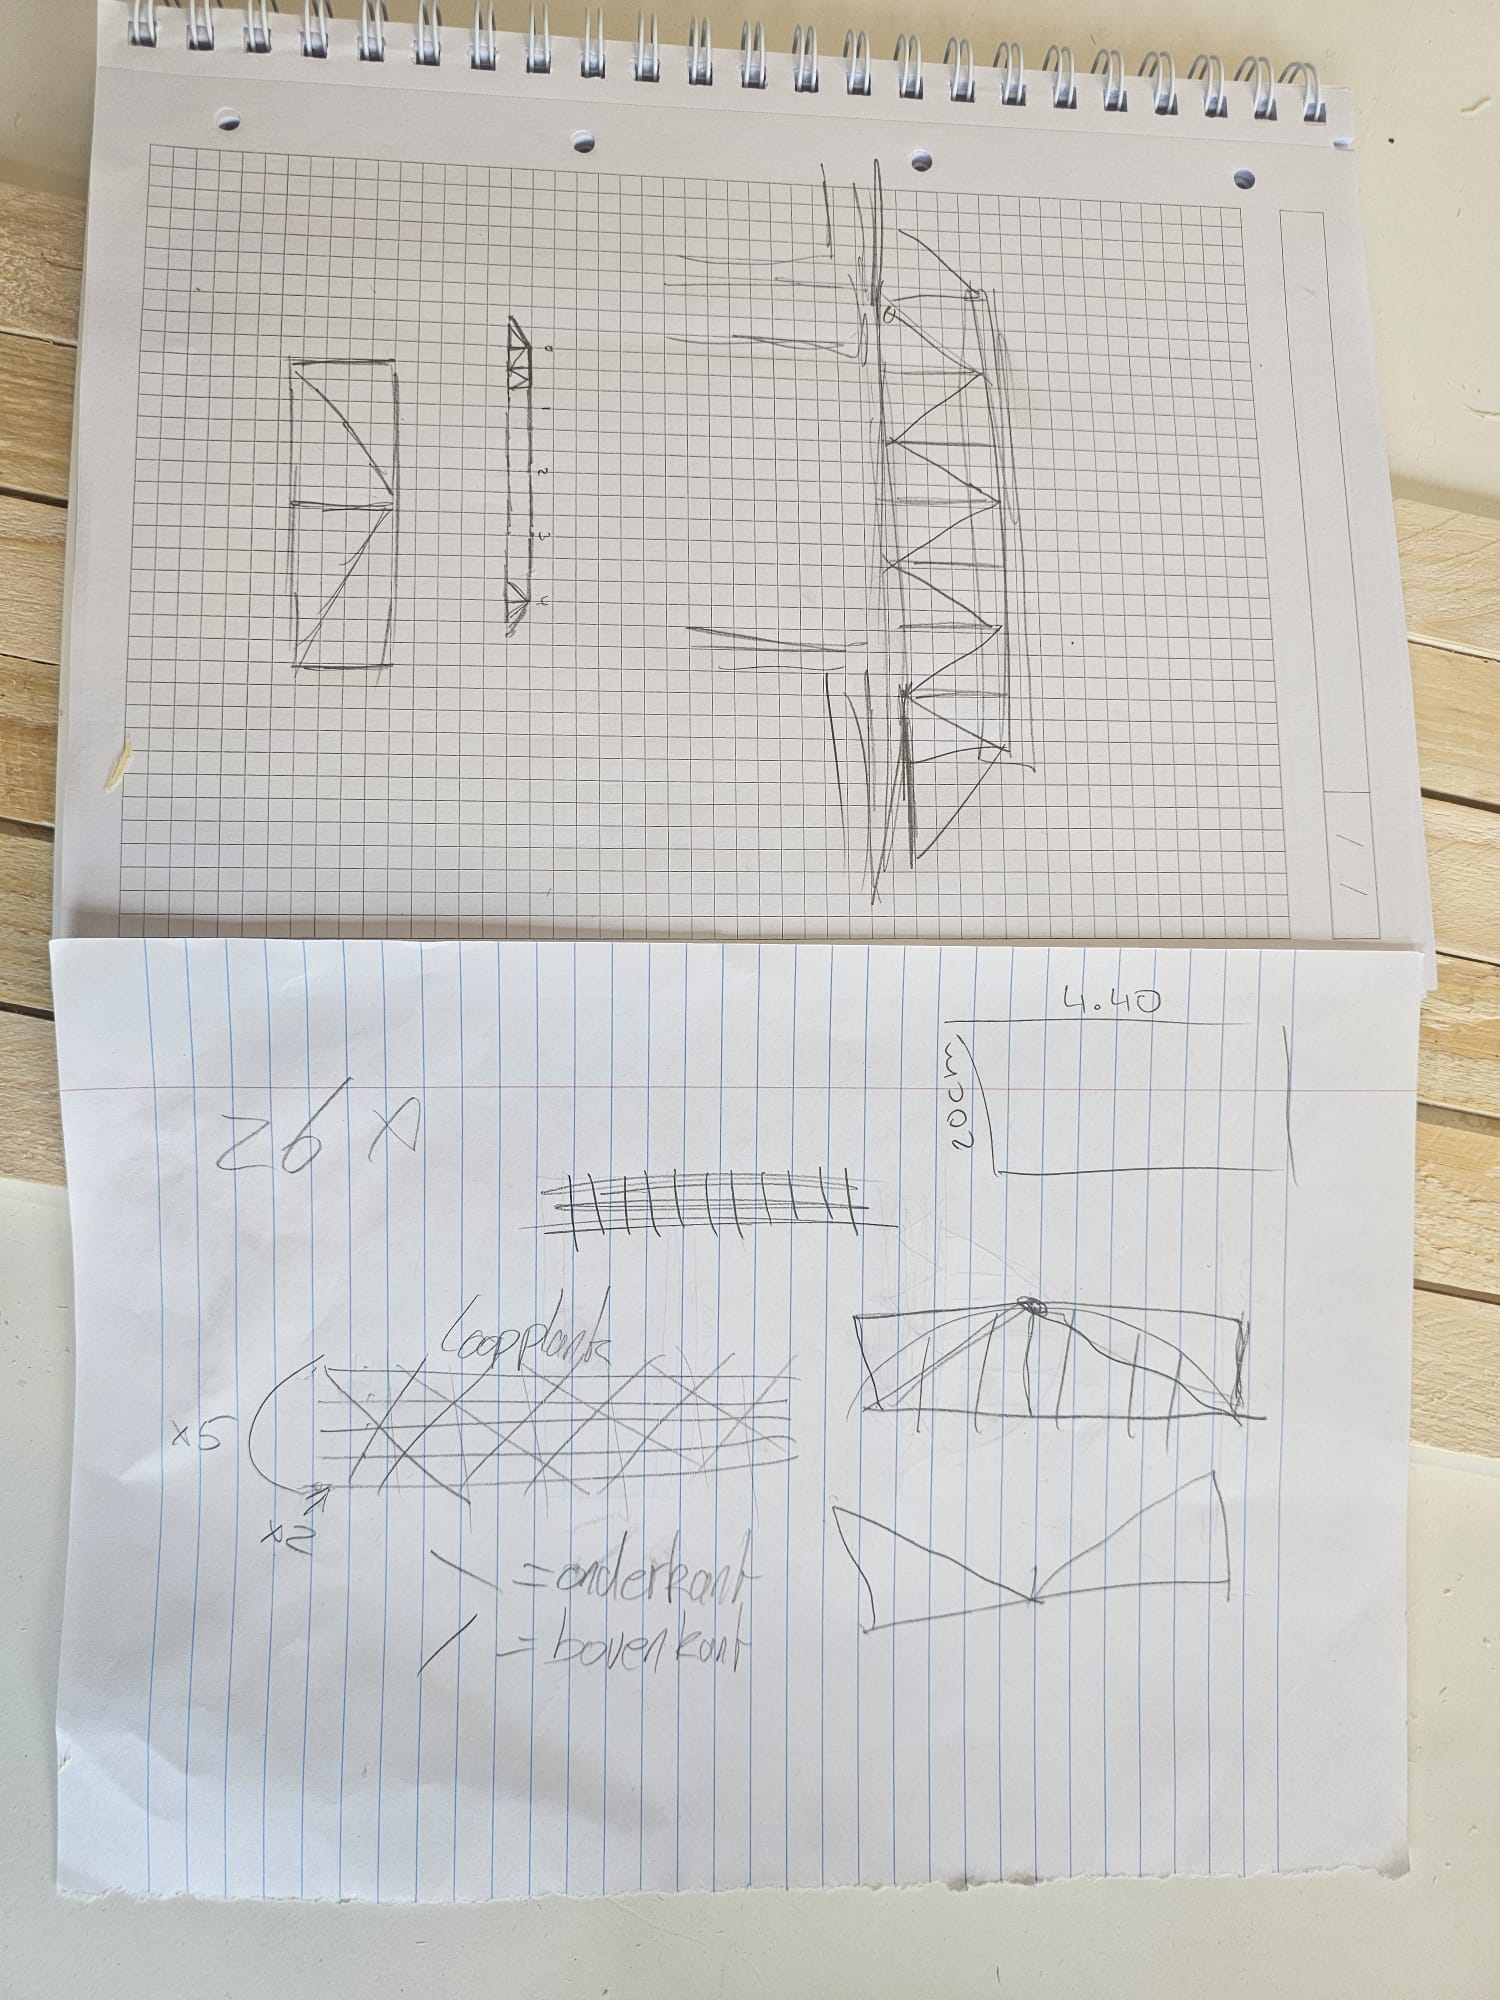 0
1
2
3
4
4.40
20cm
26 x
Loopplank
x5
x2
\ = onderkant
/ = bovenkant